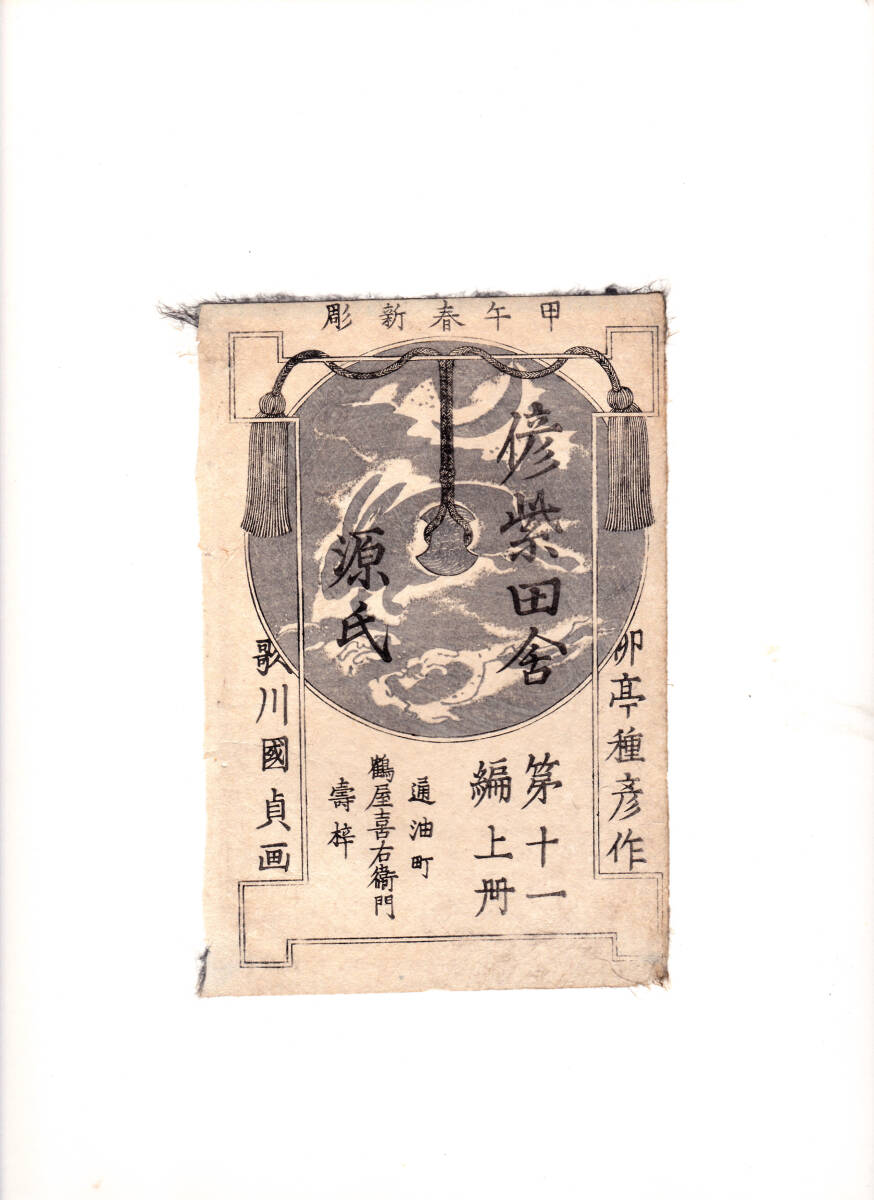 甲午春新彫
柳亭種彦作
偐紫田舎
源氏
第十一
編上冊
通油町
鶴屋喜右衞門
壽梓
歌川國貞画